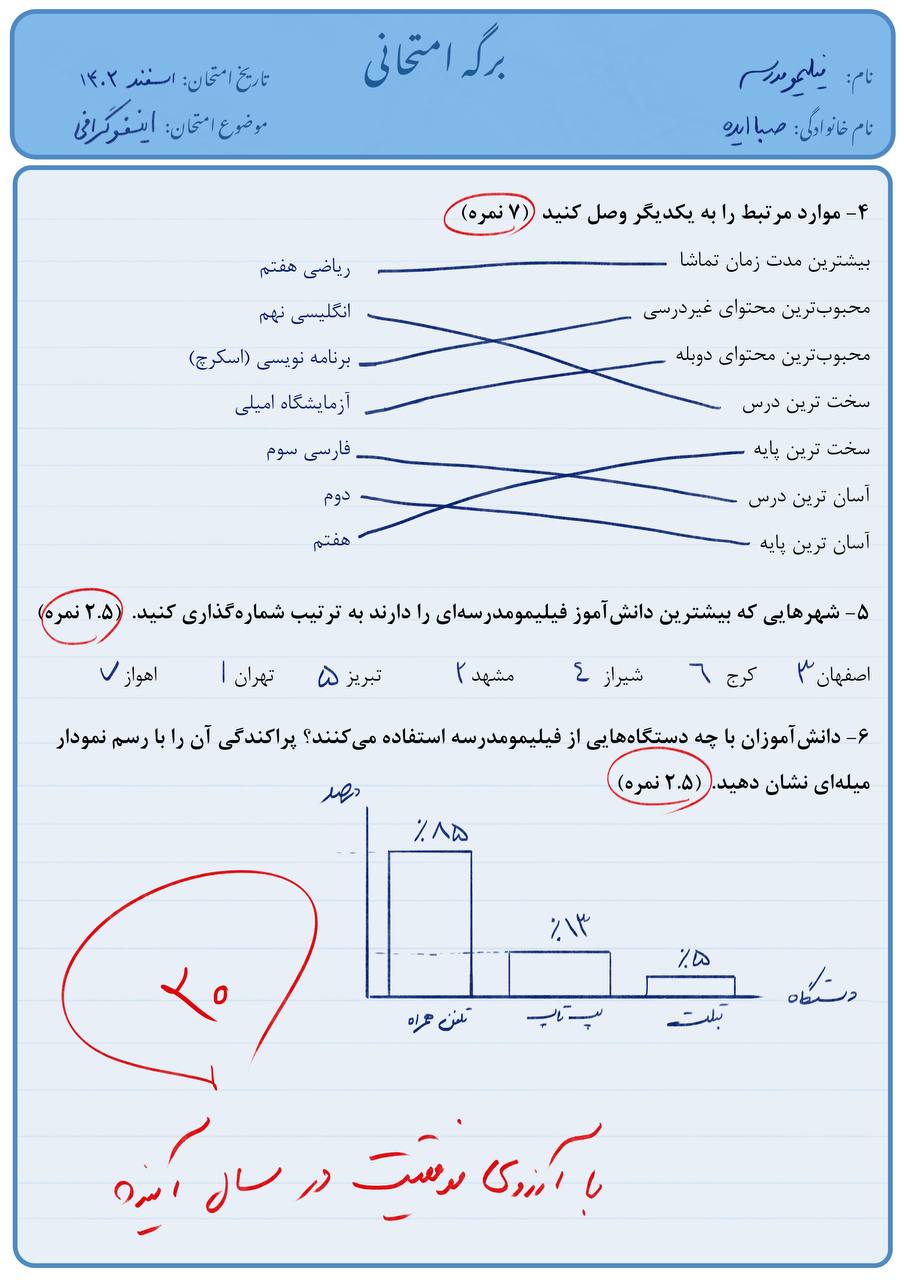 برگه امتحانی
نام: فیلیمومدرسه
تاریخ امتحان: اسفند ۱۴۰۲
نام خانوادگی: صباایده
موضوع امتحان: اینفوگرافی
۴- موارد مرتبط را به یکدیگر وصل کنید (۷ نمره)
بیشترین مدت زمان تماشا ریاضی هفتم
محبوب‌ترین محتوای غیردرسی انگلیسی نهم
محبوب‌ترین محتوای دوبله برنامه نویسی (اسکرچ)
سخت ترین درس آزمایشگاه امیلی
سخت ترین پایه فارسی سوم
آسان ترین درس دوم
آسان ترین پایه هفتم
۵- شهرهایی که بیشترین دانش‌آموز فیلیمومدرسه‌ای را دارند به ترتیب شماره‌گذاری کنید. (۲.۵ نمره)
اصفهان ۳ کرج ٦ شیراز ٤ مشهد ۲ تبریز ۵ تهران ۱ اهواز ۷
۶- دانش‌آموزان با چه دستگاه‌هایی از فیلیمومدرسه استفاده می‌کنند؟ پراکندگی آن را با رسم نمودار
میله‌ای نشان دهید. (۲.۵ نمره)
درصد
٪۸۵
٪۱۳
٪۵
دستگاه
تلفن همراه لپ تاپ تبلت
۲۰
با آرزوی موفقیت در سال آینده